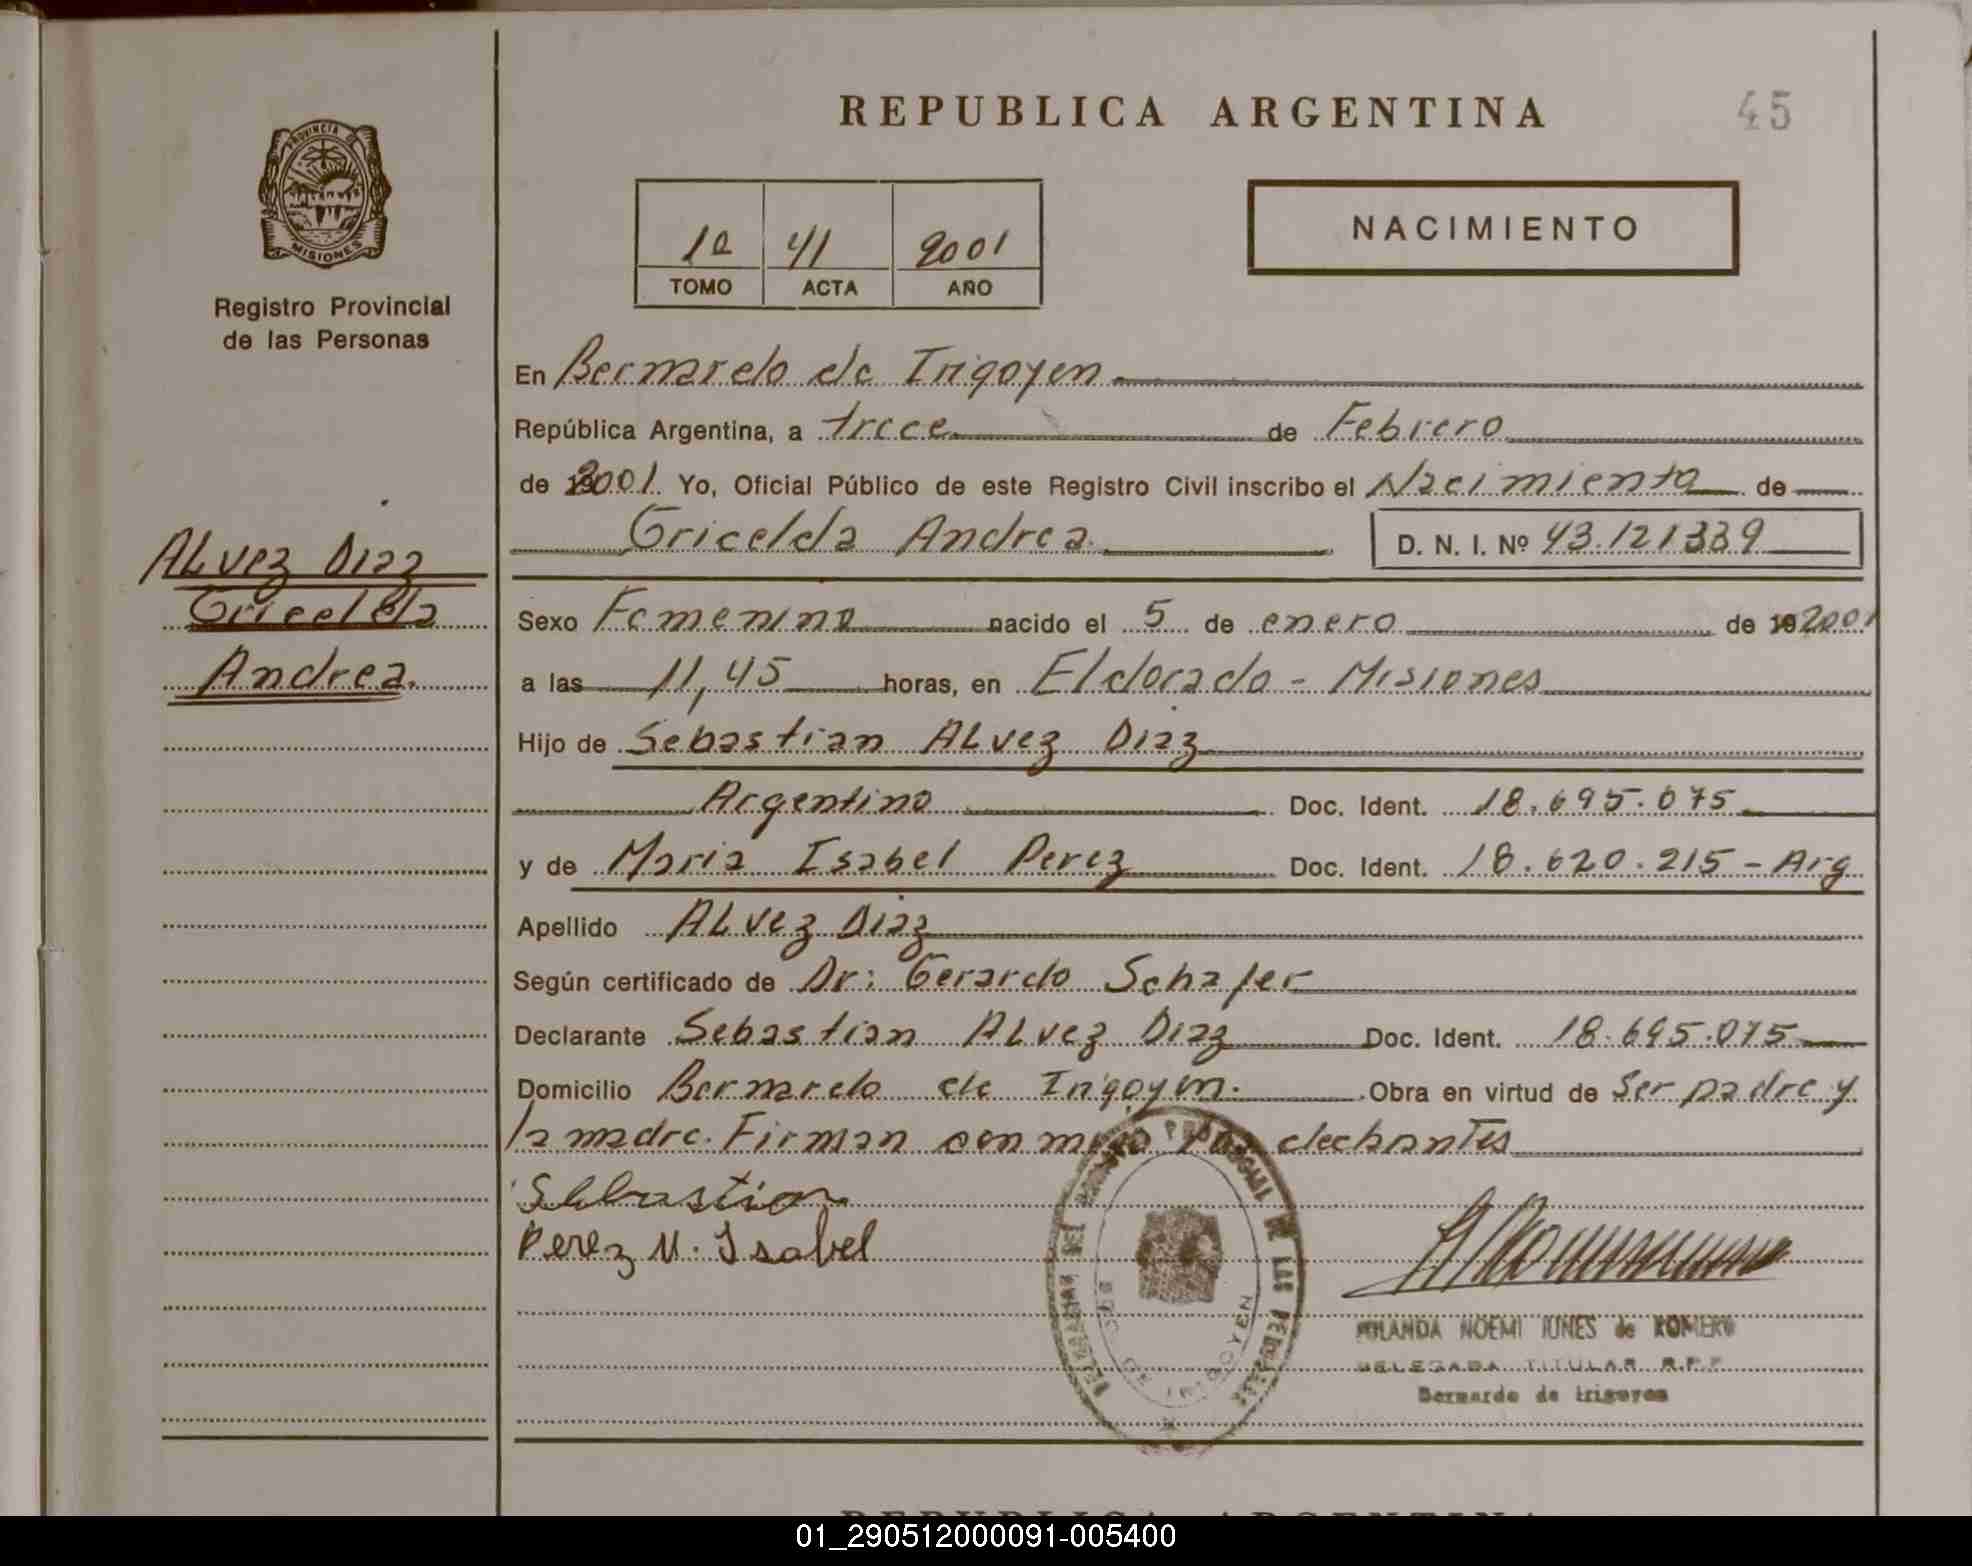 REPUBLICA ARGENTINA
45
PROVINCIA DE
MISIONES
Registro Provincial
de las Personas
1º 41 2001
TOMO ACTA AÑO
NACIMIENTO
En Bernardo de Irigoyen
República Argentina, a trece de Febrero
de 2001 Yo, Oficial Público de este Registro Civil inscribo el Nacimiento de
Gricelda Andrea D. N. I. Nº 43.121339
ALvez Diaz
Gricelda
Andrea.
Sexo Femenino nacido el 5 de enero de 192001
a las 11,45 horas, en Eldorado - Misiones
Hijo de Sebastian ALvez Diaz
Argentino Doc. Ident. 18.695.075
y de Maria Isabel Perez Doc. Ident. 18.620.215 - Arg
Apellido ALvez Diaz
Según certificado de Dr: Gerardo Schafer
Declarante Sebastian ALvez Diaz Doc. Ident. 18.695.075
Domicilio Bernardo de Irigoyen. Obra en virtud de Ser padre y
la madre. Firman con migo los
Sebastian
Perez M. Isabel
DELEGACION DEL REGISTRO PROVINCIAL DE LAS PERSONAS
BDO. DE IRIGOYEN
YOLANDA NOEMI IUNES de ROMERO
DELEGADA TITULAR R.P.P.
Bernardo de Irigoyen
REPUBLICA ARGENTINA
01_290512000091-005400